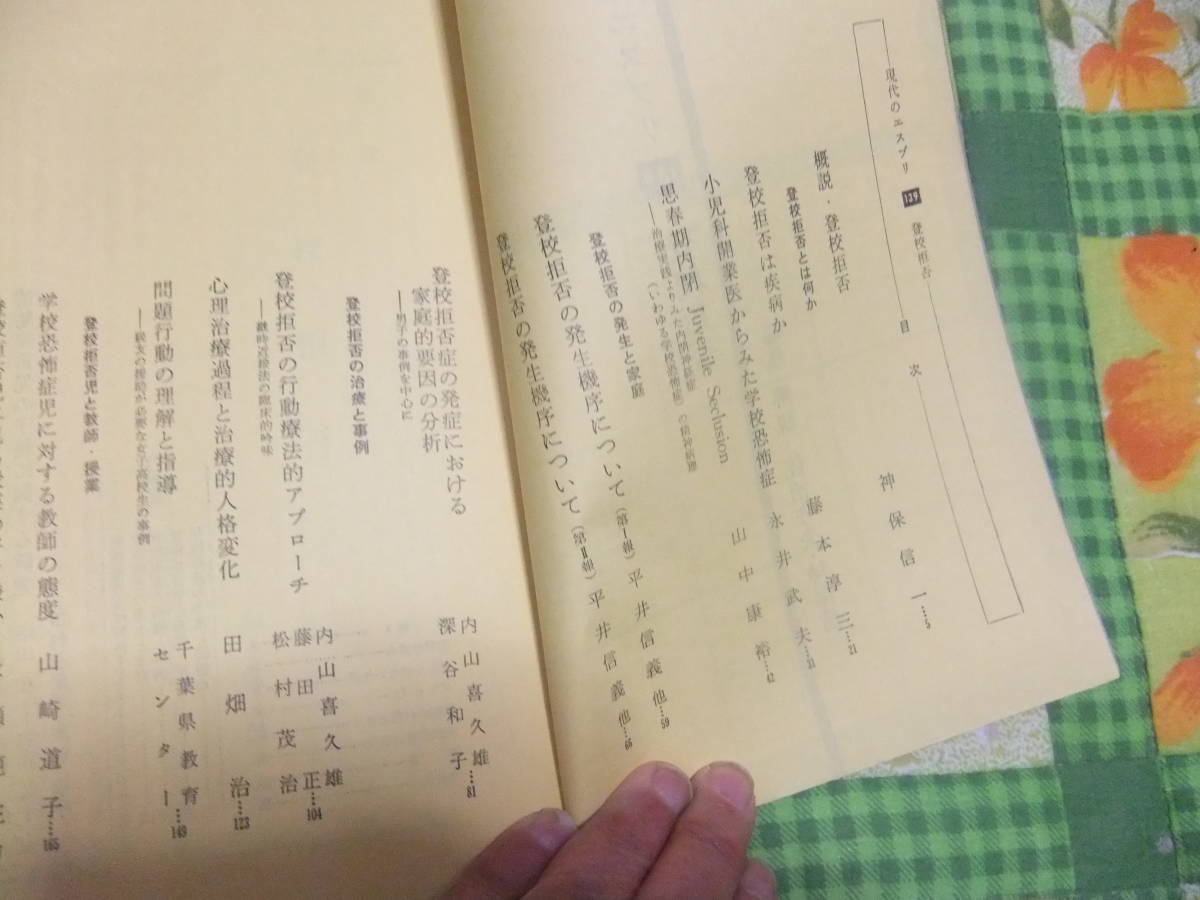 現代のエスプリ 139 登校拒否 目次
概説・登校拒否 神保信一…5
登校拒否とは何か
登校拒否は疾病か 藤本淳三…21
小児科開業医からみた学校恐怖症 永井武夫…31
思春期内閉 Juvenile Seclusion 山中康裕…42
――治療実践よりみた内閉神経症
(いわゆる学校恐怖症)の精神病理
登校拒否の発生と家庭
登校拒否の発生機序について(第Ⅰ報) 平井信義他…59
登校拒否の発生機序について(第Ⅱ報) 平井信義他…68
登校拒否症の発症における
家庭的要因の分析
――男子の事例を中心に
内山喜久雄
深谷和子…81
登校拒否の治療と事例
登校拒否の行動療法的アプローチ
――継時近接法の臨床的吟味
内山喜久雄
藤田正
松村茂治…104
心理治療過程と治療的人格変化 田畑治…123
問題行動の理解と指導
――援助が必要な女子高校生の事例
千葉県教育
センター…149
登校拒否児と教師・授業
学校恐怖症児に対する教師の態度 山崎道子…165